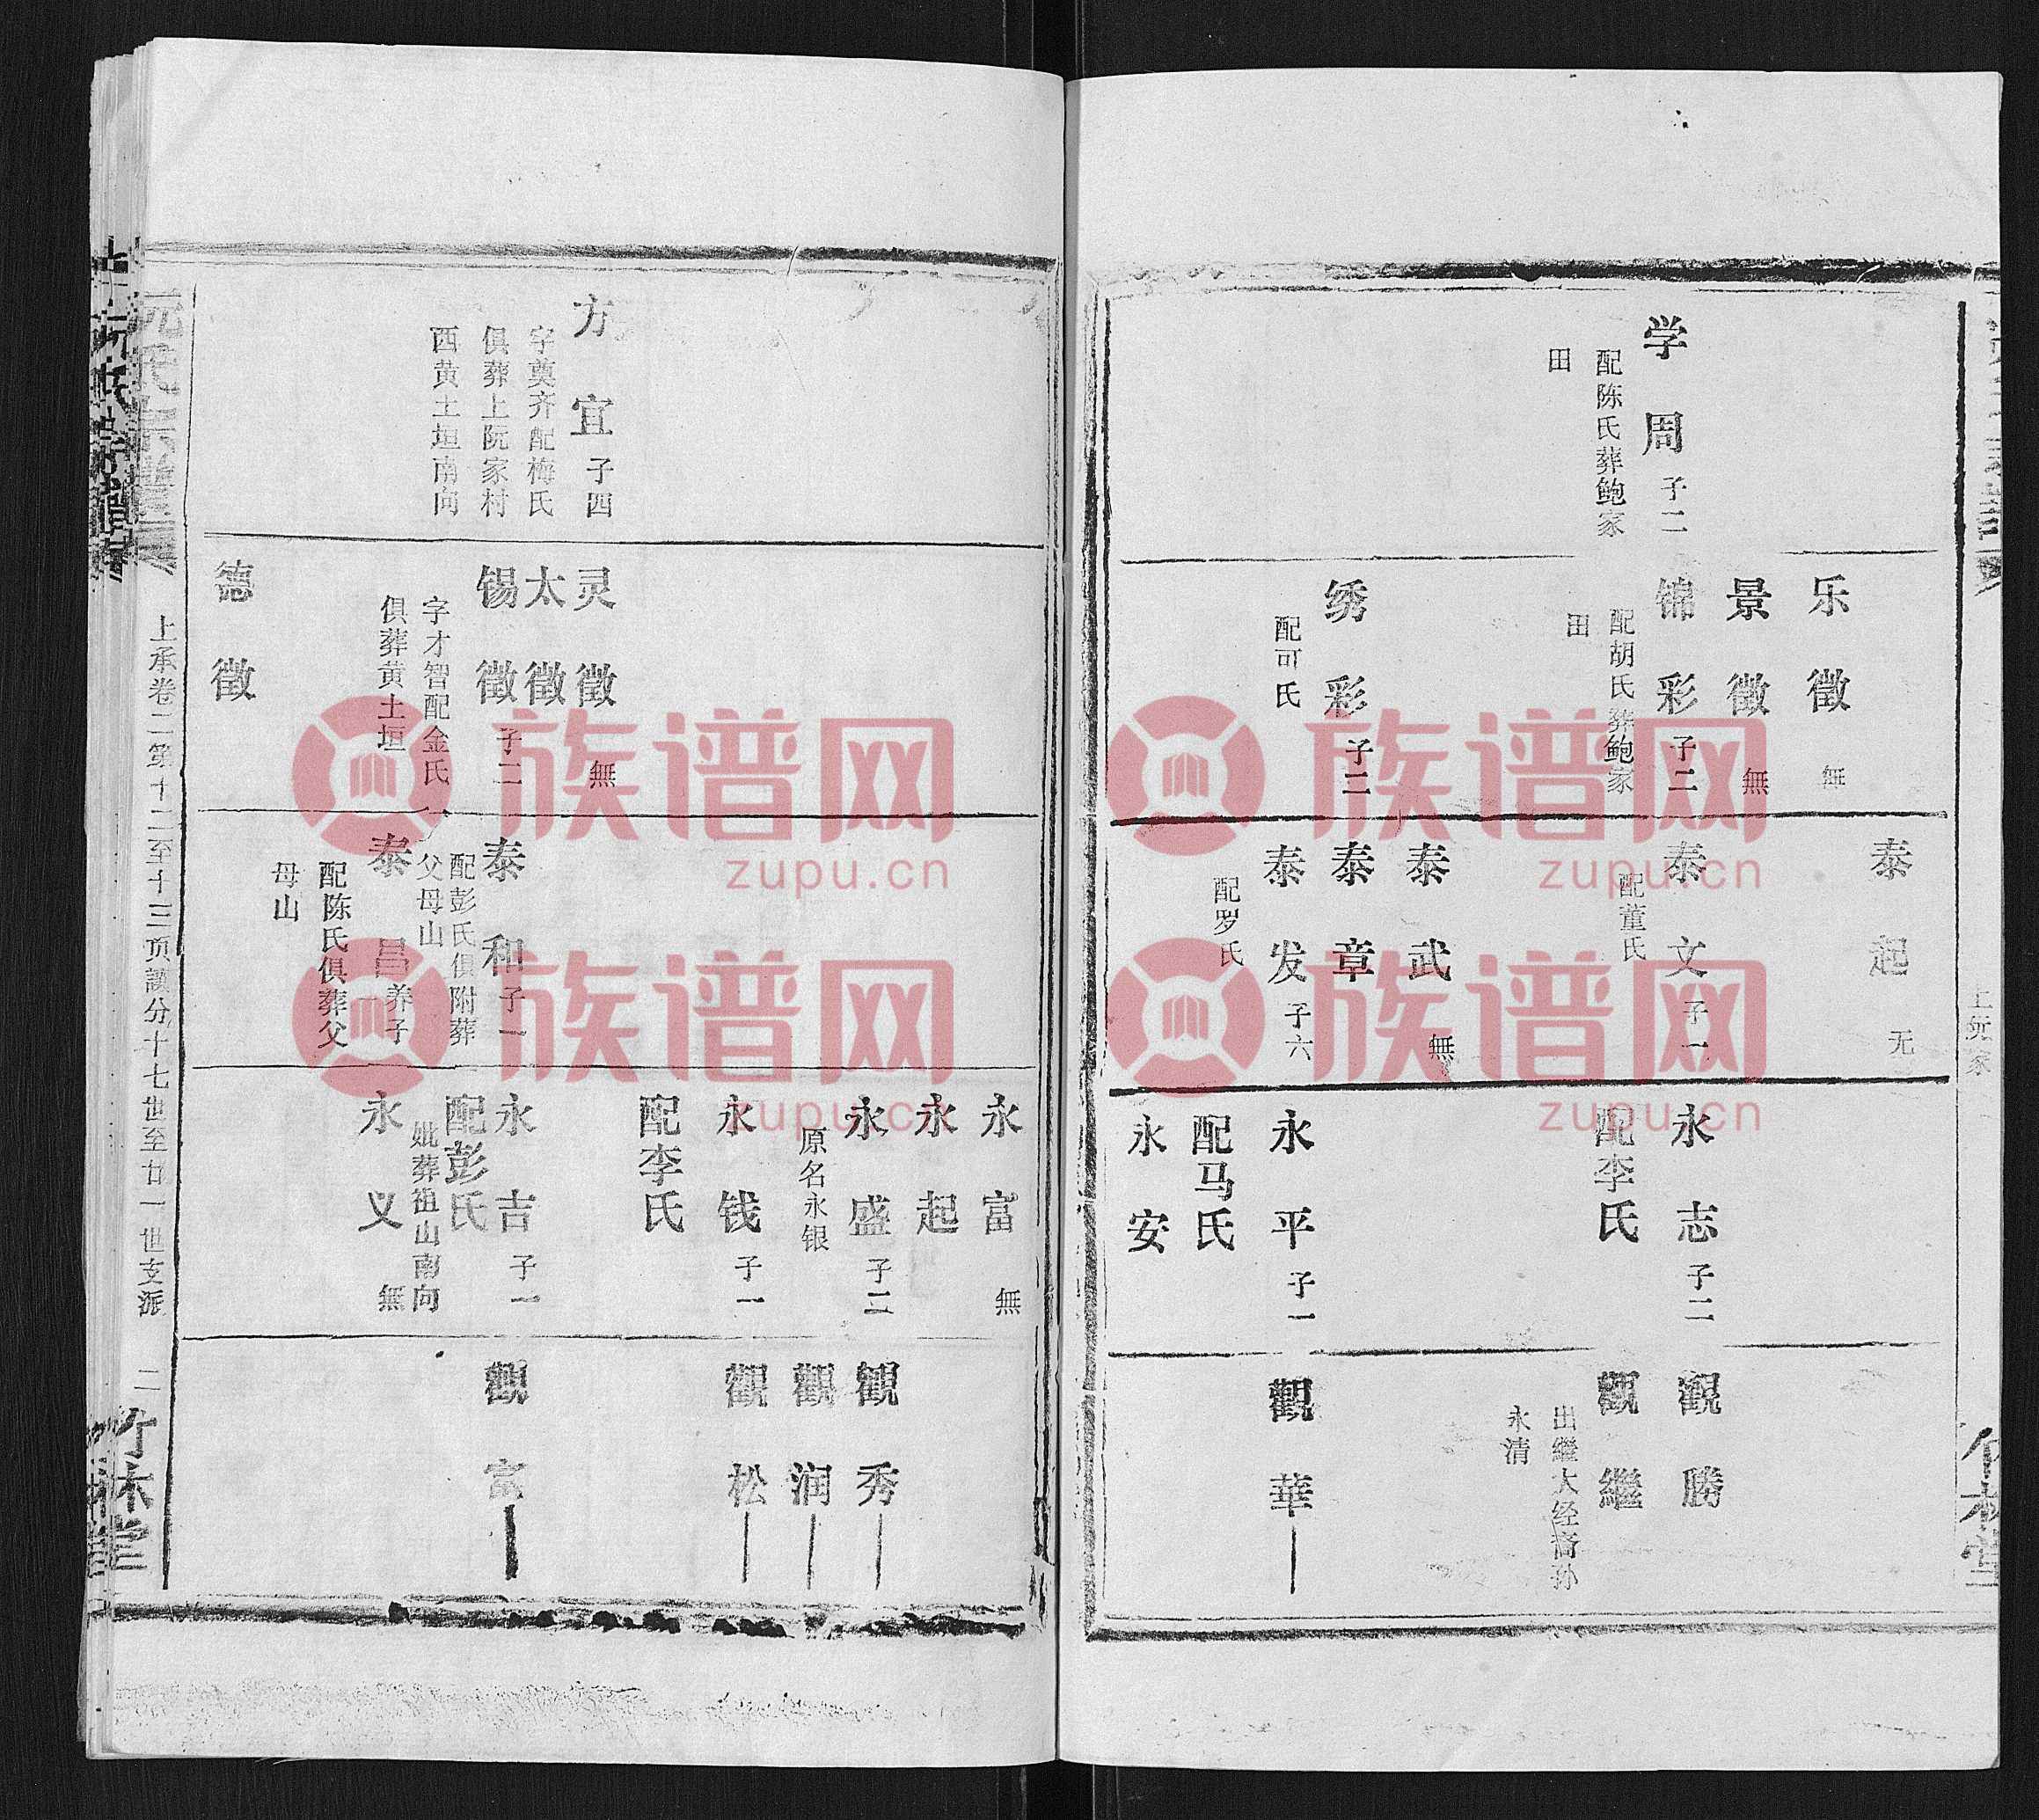 学周 子二
配陈氏葬鲍家
田
乐徵 無
景徵 無
锦彩 子二
配胡氏葬鲍家
田
绣彩 子二
配可氏
泰起 无
泰文 子一
配董氏
泰武 無
泰章
泰发 子六
配罗氏
永志 子二
配李氏
永平 子一
配马氏
永安
觀勝
觀繼
出繼大经裔孙
永清
觀華
上阮家
竹林堂
方宜 子四
字奠齐配梅氏
俱葬上阮家村
西黄土垣南向
灵徵 無
太徵
锡徵 子二
字才智配金氏
俱葬黄土垣
德徵
泰和 子一
配彭氏俱附葬
父母山
泰昌 养子
配陈氏俱葬父
母山
永富 無
永起
永盛 子二
原名永银
永钱 子一
配李氏
永吉 子一
配彭氏
妣葬祖山南向
永义 無
觀秀
觀润
觀松
觀富
阮氏宗譜
上承卷二第十二至十三頂讓分十七世至廿一世支派
二
竹林堂
族谱网
zupu.cn
族谱网
zupu.cn
族谱网
zupu.cn
族谱网
zupu.cn